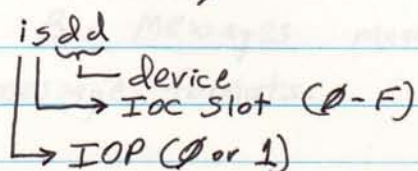 isdd
device
IOC Slot (Ø-F)
IOP (Ø or 1)